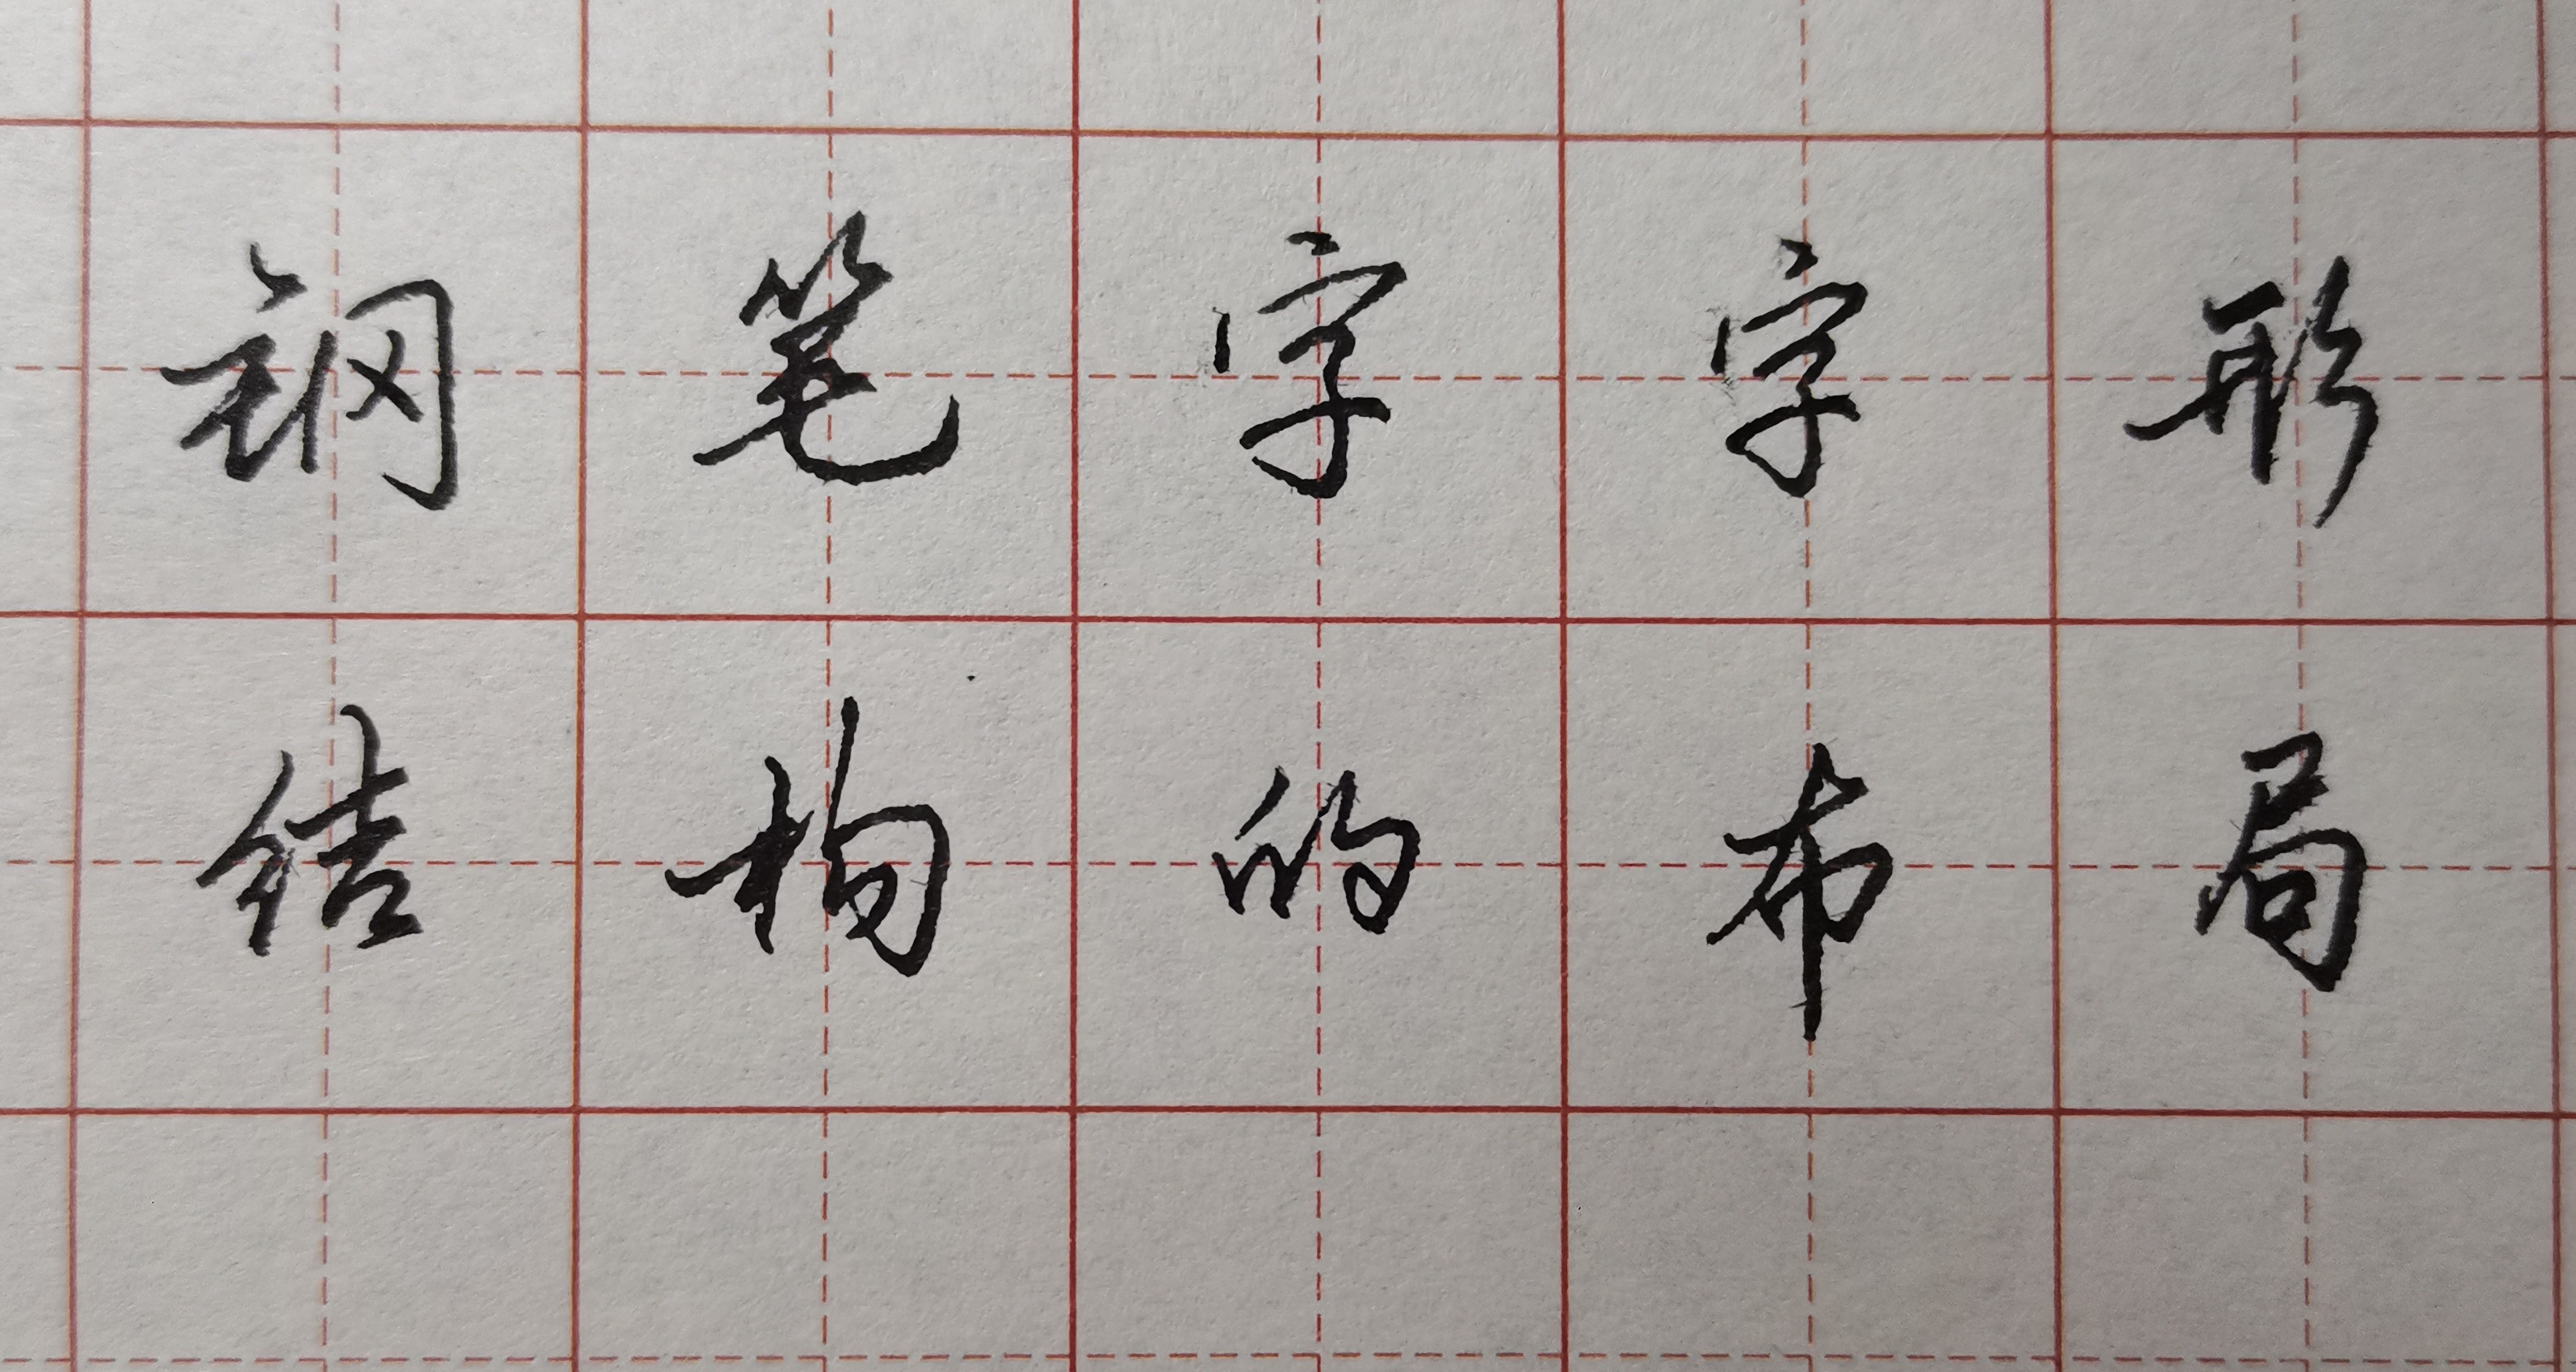 钢笔字字形
结构的布局